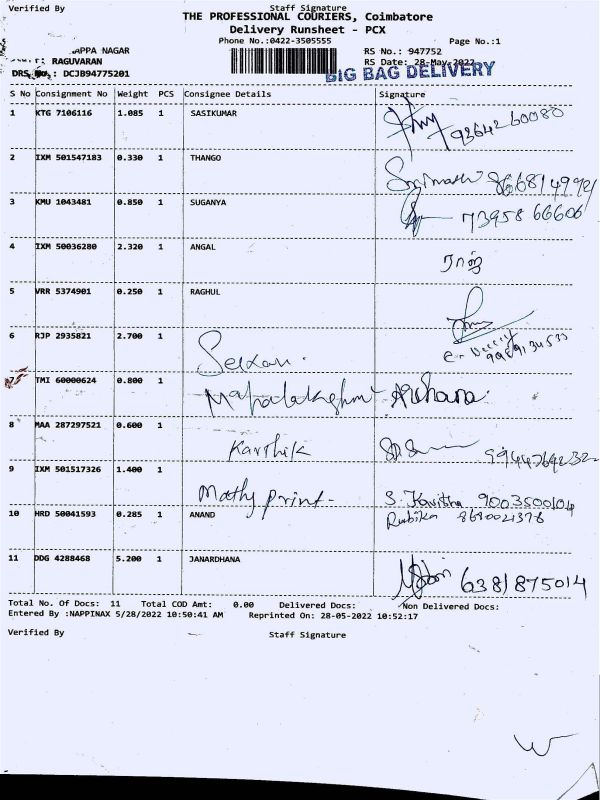 Verified By Staff Signature
THE PROFESSIONAL COURIERS, Coimbatore
Delivery Runsheet - PCX
Phone No.:0422-3505555 Page No.:1
APPA NAGAR RS No.: 947752
: RAGUVARAN RS Date: 28-May-2022
DRS No.: DCJB94775201 BIG BAG DELIVERY
S No Consignment No Weight PCS Consignee Details Signature
1 KTG 7106116 1.085 1 SASIKUMAR 9364260080
2 IXM 501547183 0.330 1 THANGO
3 KMU 1043481 0.850 1 SUGANYA 73958 66606
4 IXM 50036280 2.320 1 ANGAL ராஜ்
5 VRR 5374901 0.250 1 RAGHUL
6 RJP 2935821 2.700 1
TMI 60000624 0.800 1 Archana
8 MAA 287297521 0.600 1 Karthik
9 IXM 501517326 1.400 1 Mathy print S. Kavitha 9003500104
10 HRD 50041593 0.285 1 ANAND Rubika
11 DDG 4288468 5.200 1 JANARDHANA 6381875014
Total No. Of Docs: 11 Total COD Amt: 0.00 Delivered Docs: Non Delivered Docs:
Entered By :NAPPINAX 5/28/2022 10:50:41 AM Reprinted On: 28-05-2022 10:52:17
Verified By Staff Signature